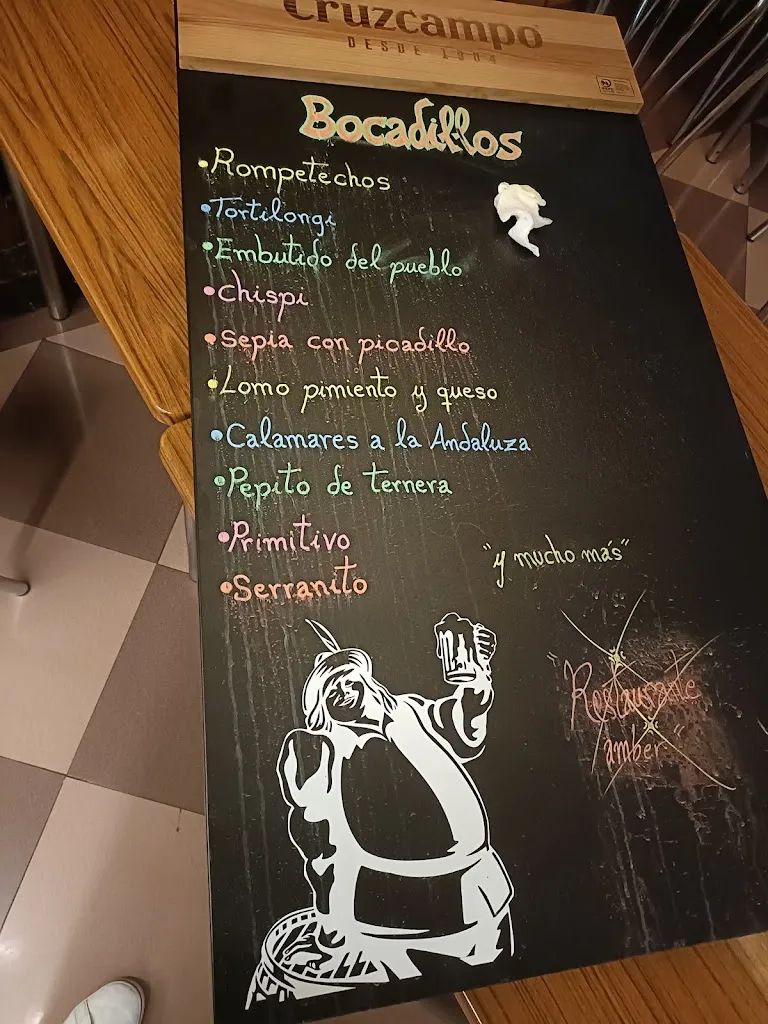 Cruzcampo
DESDE 1904
Bocadillos
•Rompetechos
•Tortilongi
•Embutido del pueblo
•Chispi
•Sepia con picadillo
•Lomo pimiento y queso
•Calamares a la Andaluza
•Pepito de ternera
•Primitivo
"y mucho más"
•Serranito